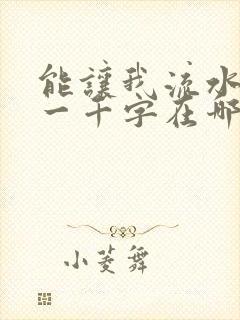 能讓我流水
一千字在哪
小菱舞